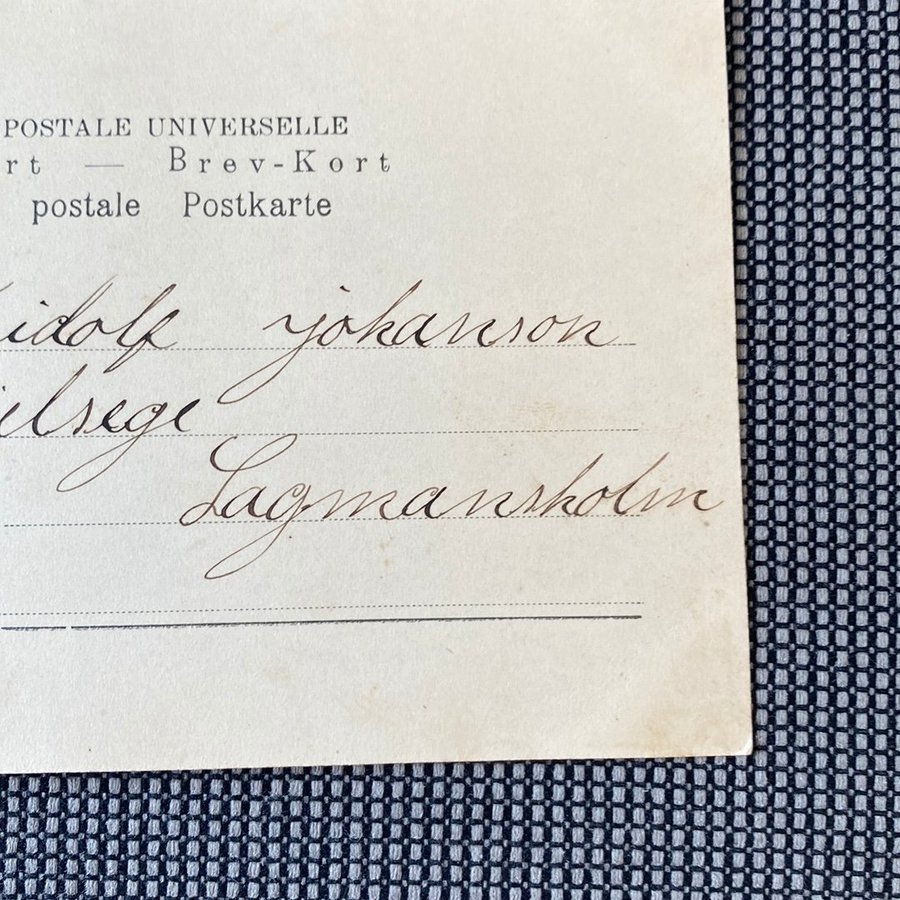 POSTALE UNIVERSELLE
rt — Brev-Kort
postale Postkarte
idolf johanson
elsege
Lagmansholm